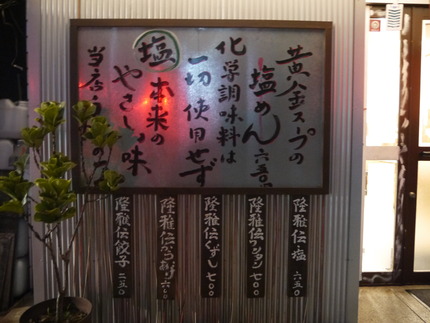 黄金スープの
塩めん 六五〇円
化学調味料は
一切使用せず
塩本来の
やさしい味
当店
隆雅伝塩 六五〇
隆雅伝ワンタン 七〇〇
隆雅伝くずし 七〇〇
隆雅伝からあげ 六〇〇
隆雅伝餃子 二五〇